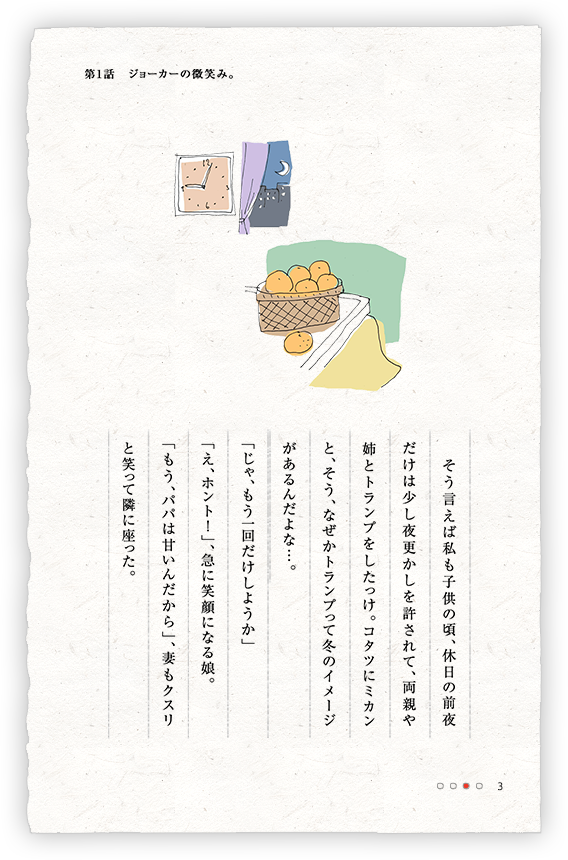 第1話　ジョーカーの微笑み。
12
3
6
9
そう言えば私も子供の頃、休日の前夜
だけは少し夜更かしを許されて、両親や
姉とトランプをしたっけ。コタツにミカン
と、そう、なぜかトランプって冬のイメージ
があるんだよな…。
「じゃ、もう一回だけしようか」
「え、ホント！」、急に笑顔になる娘。
「もう、パパは甘いんだから」、妻もクスリ
と笑って隣に座った。
3